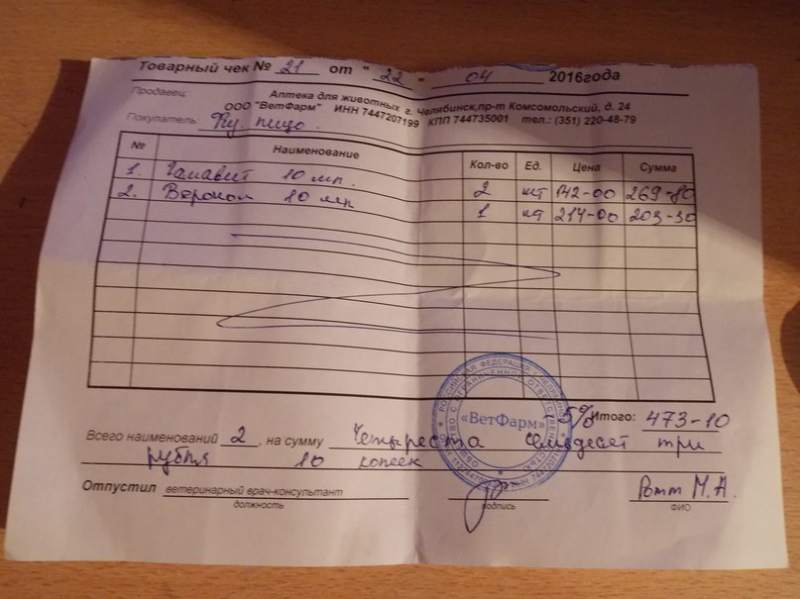 Товарный чек № 21 от " 22 - 04 2016года
Продавец: Аптека для животных г. Челябинск,пр-т Комсомольский, д. 24
ООО "ВетФарм" ИНН 7447207199 КПП 744735001 тел.: (351) 220-48-79
Покупатель: Физ. лицо.
№ Наименование Кол-во Ед. Цена Сумма
1. Гамавит 10 мл. 2 шт 142-00 269-80
2. Веракол 10 мл 1 шт 214-00 203-30
«ВетФарм»
-5% Итого: 473-10
Всего наименований 2, на сумму Четыреста семьдесят три
рубля 10 копеек
Отпустил ветеринарный врач-консультант Ротт М.А.
должность подпись ФИО